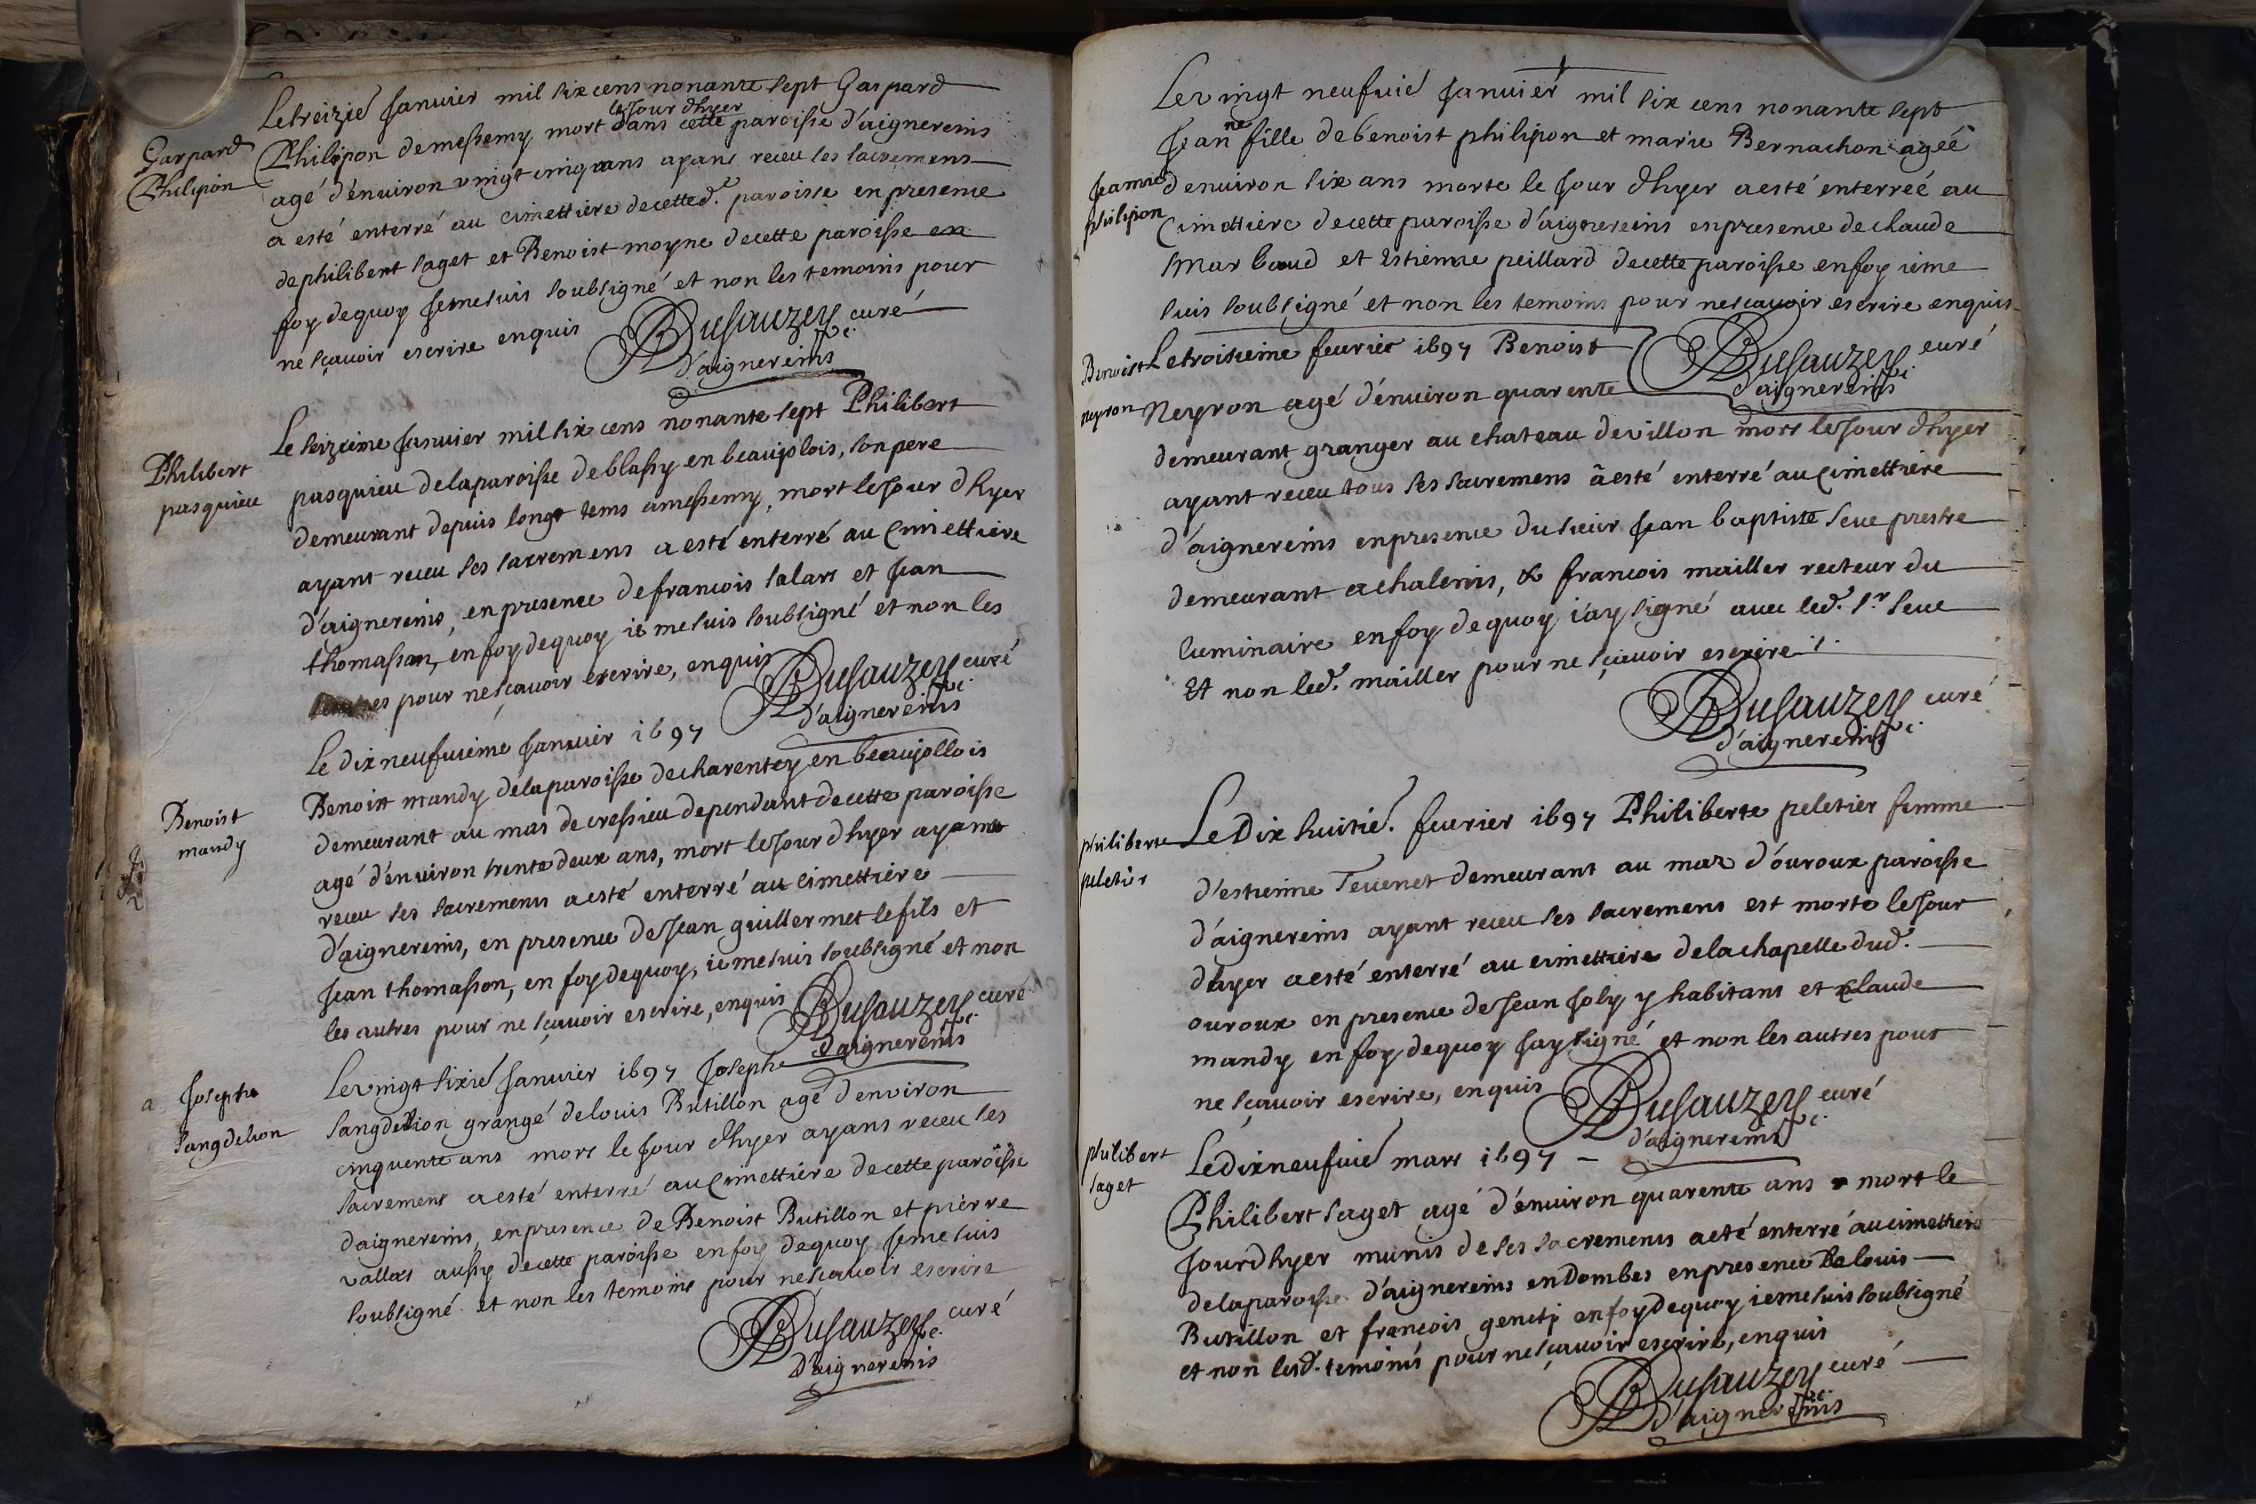 Le treizié Janvier mil six cens nonante sept Gaspard
le Jour d'hyer
Gaspard
Philipon
Philipon de messemy mort dans cette paroisse d'aignereins
agé d'environ vingt cinq ans ayans receu ses sacremens
a esté enterré au cimettiere de cetted. paroisse en presence
de philibert saget et Benoist moyne de cette paroisse en
foy de quoy je me suis soubsigné et non les temoins pour
ne sçavoir escrire enquis Dusauzey curé
d'aignereins
Philibert
pasquieu
Le seizieme Janvier mil six cens nonante sept Philibert
pasquieu de la paroisse de blassy en beaujolois, son pere
demeurant depuis longt tems a messemy, mort le Jour d'hyer
ayant receu ses sacremens a esté enterré au Cimettiere
d'aignereins, en presence de francois salars et Jean
thomasson, en foy de quoy ie me suis soubsigné et non les
pour ne sçavoir escrire, enquis Dusauzey curé
d'aignereins
Benoist
mandy
Le dix neufvieme Janvier 1697
Benoist mandy de la paroisse de charentey en beaujollois
demeurant au mas de cressieu dependant de cette paroisse
agé d'environ trente deux ans, mort le Jour d'hyer ayant
receu ses sacremens a esté enterré au cimettiere
d'aignereins, en presence de Jean guillermet le fils et
Jean thomasson, en foy de quoy, ie me suis soubsigné et non
les autres pour ne sçavoir escrire, enquis Dusauzey curé
d'aignereins
a Josephe
sangdelion
Le vingt sixié Janvier 1697 Josephe
sangdelion grangé de louis Butillon agé d'environ
cinquente ans mors le Jour d'hyer ayans receu ses
sacremens a esté enterré au Cimettiere de cette paroisse
daignereins, en presence de Benoist Butillon et pierre
vallos aussy de cette paroisse en foy de quoy Je me suis
soubsigné et non les temoins pour ne sçavoir escrire
Dusauzey curé
D'aignereins
Le vingt neufvié Janvier mil six cens nonante sept
Jeanne
philipon
Jeanne fille de benoist philipon et marie Bernachon agéé
d'environ six ans morte le Jour d'hyer a esté enterréé au
Cimettiere de cette paroisse d'aignereins en presence de claude
Marbaud et Estienne peillard de cette paroisse en foy ie me
suis soubsigné et non les temoins pour ne sçavoir escrire enquis
Dusauzey curé
d'aignereins
Benoist
neyron
Le troisieme feurier 1697 Benoist
Neyron agé d'environ quarente
demeurant granger au chateau de villon mors le Jour d'hyer
ayant receu tous ses sacremens a esté enterré au Cimettiere
d'aignereins en presence du sieur Jean baptiste seve prestre
demeurant a chaleins, & francois mailler recteur du
luminaire en foy de quoy i'ay signé avec led. sr. seve
Et non led. mailler pour ne sçavoir escrire
Dusauzey curé
d'aignereins
philiberte
peletier
Le Dix huitié. feurier 1697 Philiberte peletier femme
d'estienne Tevenet demeurant au mas d'ouroux paroisse
d'aignereins ayant receu ses sacremens est morte le Jour
d'hyer a esté enterré au cimettiere de la chapelle dud.
ouroux en presence de Jean Joly y habitans et claude
mandy en foy de quoy Jay signé et non les autres pour
ne sçavoir escrire, enquis Dusauzey curé
d'aignereins
philibert
saget
Le dix neufvié mars 1697
Philibert saget agé d'environ quarente ans mort le
Jour d'hyer munis de ses sacremens a eté enterré au cimettiere
de la paroisse d'aignereins en Dombes en presence De louis
Butillon et francois genety en foy de quoy ie me suis soubsigné
et non lesd. temoins pour ne sçavoir escrire, enquis
Dusauzey curé
d'aignereins